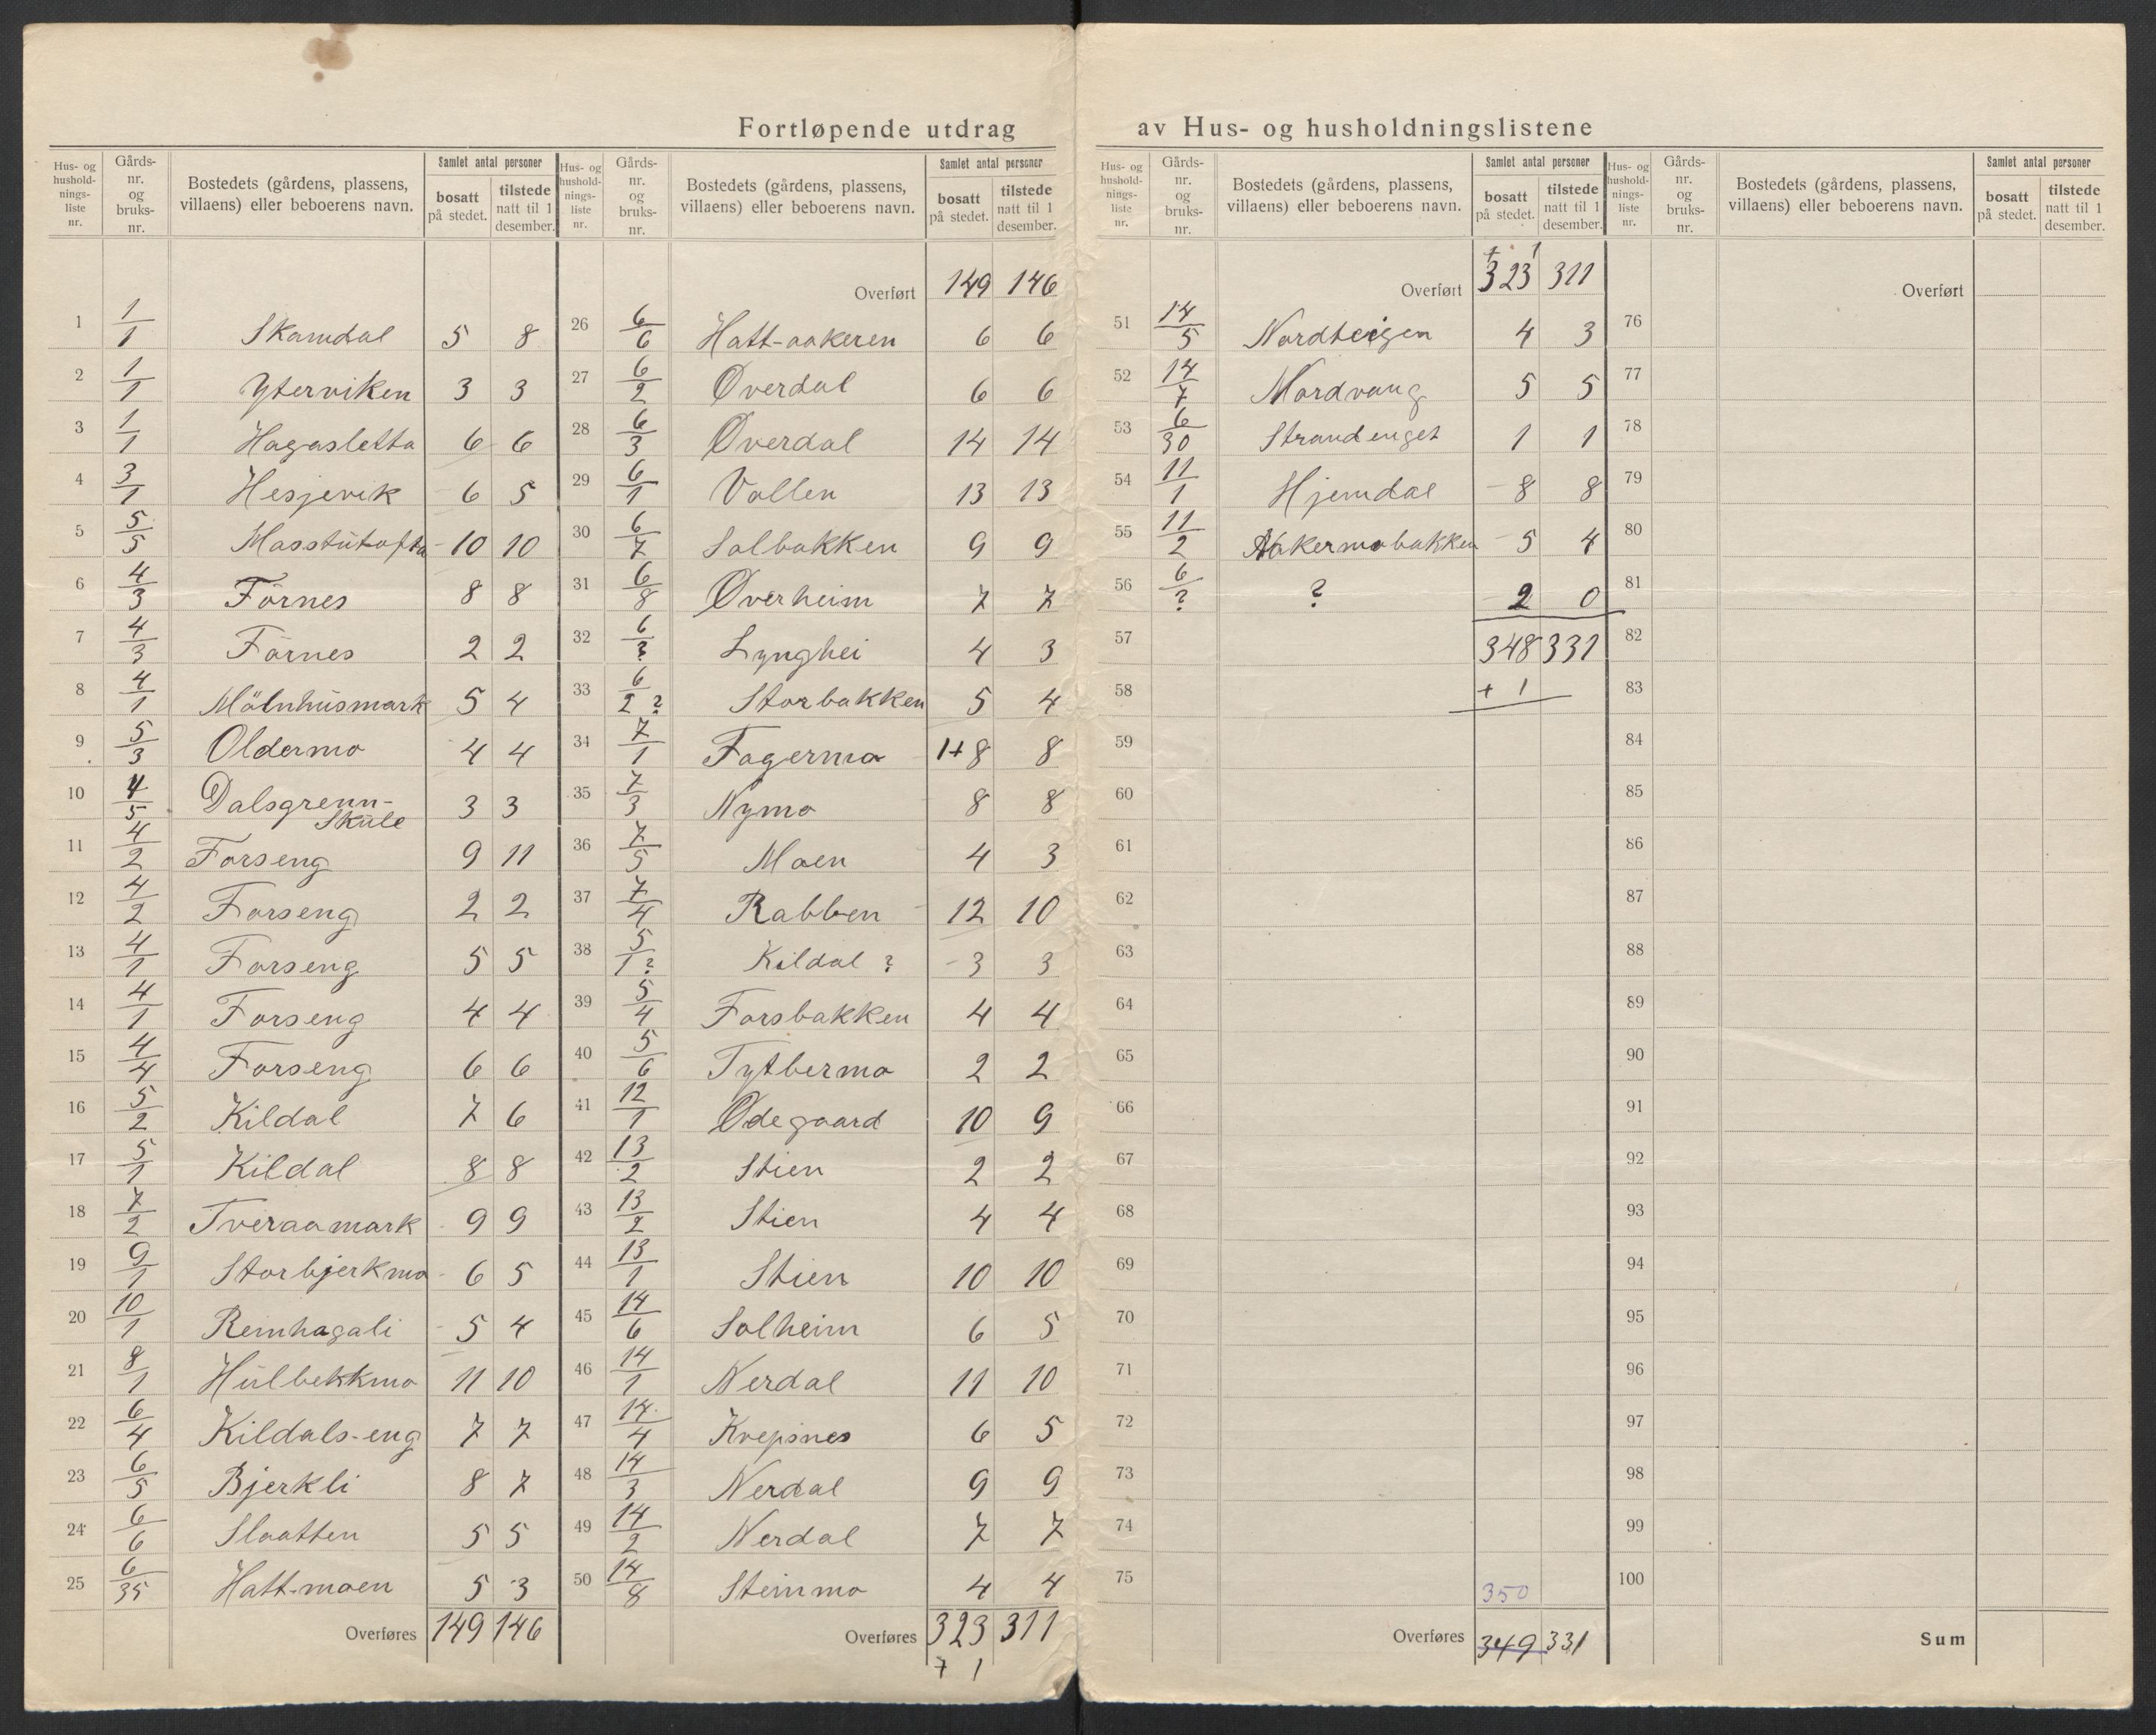 Fortløpende utdrag av Hus- og husholdningslistene
Hus- og hushold-nings-liste nr. Gårds-nr. og bruks-nr. Bostedets (gårdens, plassens, villaens) eller beboerens navn. Samlet antal personer bosatt på stedet. tilstede natt til 1 desember.
1 1/1 Skamdal 5 8
2 1/1 Yterviken 3 3
3 1/1 Hagasletta 6 6
4 3/1 Hesjevik 6 5
5 5/5 Masstutofta 10 10
6 4/3 Förnes 8 8
7 4/3 Förnes 2 2
8 4/1 Mölnhusmark 5 4
9 5/3 Oldermo 4 4
10 4/5 Dalsgrenn-
Skule 3 3
11 4/2 Forseng 9 11
12 4/2 Forseng 2 2
13 4/1 Forseng 5 5
14 4/1 Forseng 4 4
15 4/4 Forseng 6 6
16 5/2 Kildal 7 6
17 5/1 Kildal 8 8
18 7/2 Tveraamark 9 9
19 9/1 Storbjerkmo 6 5
20 10/1 Reinhagali 5 4
21 8/1 Hulbekkmo 11 10
22 6/4 Kildals-eng 7 7
23 6/5 Bjerkli 8 7
24 6/6 Slaatten 5 5
25 6/35 Hatt-moen 5 3
Overføres 149 146
Hus- og hushold-nings-liste nr. Gårds-nr. og bruks-nr. Bostedets (gårdens, plassens, villaens) eller beboerens navn. Samlet antal personer bosatt på stedet. tilstede natt til 1 desember.
Overført 149 146
26 6/6 Hatt-aakeren 6 6
27 6/2 Överdal 6 6
28 6/3 Överdal 14 14
29 6/1 Vollen 13 13
30 6/7 Solbakken 9 9
31 6/8 Överheim 7 7
32 6/? Lynghei 4 3
33 6/2 ? Storbakken 5 4
34 7/1 Fagermo 1+8 8
35 7/3 Nymo 8 8
36 7/5 Moen 4 3
37 7/4 Rabben 12 10
38 5/1 ? Kildal ? 3 3
39 5/4 Forsbakken 4 4
40 5/6 Tytbermo 2 2
41 12/1 Ödegaard 10 9
42 13/2 Stien 2 2
43 13/2 Stien 4 4
44 13/1 Stien 10 10
45 14/6 Solheim 6 5
46 14/1 Nerdal 11 10
47 14/4 Krepsnes 6 5
48 14/3 Nerdal 9 9
49 14/2 Nerdal 7 7
50 14/8 Steinmo 4 4
Overføres 323 311
+ 1
Hus- og hushold-nings-liste nr. Gårds-nr. og bruks-nr. Bostedets (gårdens, plassens, villaens) eller beboerens navn. Samlet antal personer bosatt på stedet. tilstede natt til 1 desember.
+ 1
Overført 323 311
51 14/5 Nordteigen 4 3
52 14/7 Nordvang 5 5
53 6/30 Strandenget 1 1
54 11/1 Hjemdal 8 8
55 11/2 Aakermobakken 5 4
56 6/? ? 2 0
57 348 331
58 + 1
59
60
61
62
63
64
65
66
67
68
69
70
71
72
73
74
75
350
Overføres 349 331
Hus- og hushold-nings-liste nr. Gårds-nr. og bruks-nr. Bostedets (gårdens, plassens, villaens) eller beboerens navn. Samlet antal personer bosatt på stedet. tilstede natt til 1 desember.
Overført
76
77
78
79
80
81
82
83
84
85
86
87
88
89
90
91
92
93
94
95
96
97
98
99
100
Sum